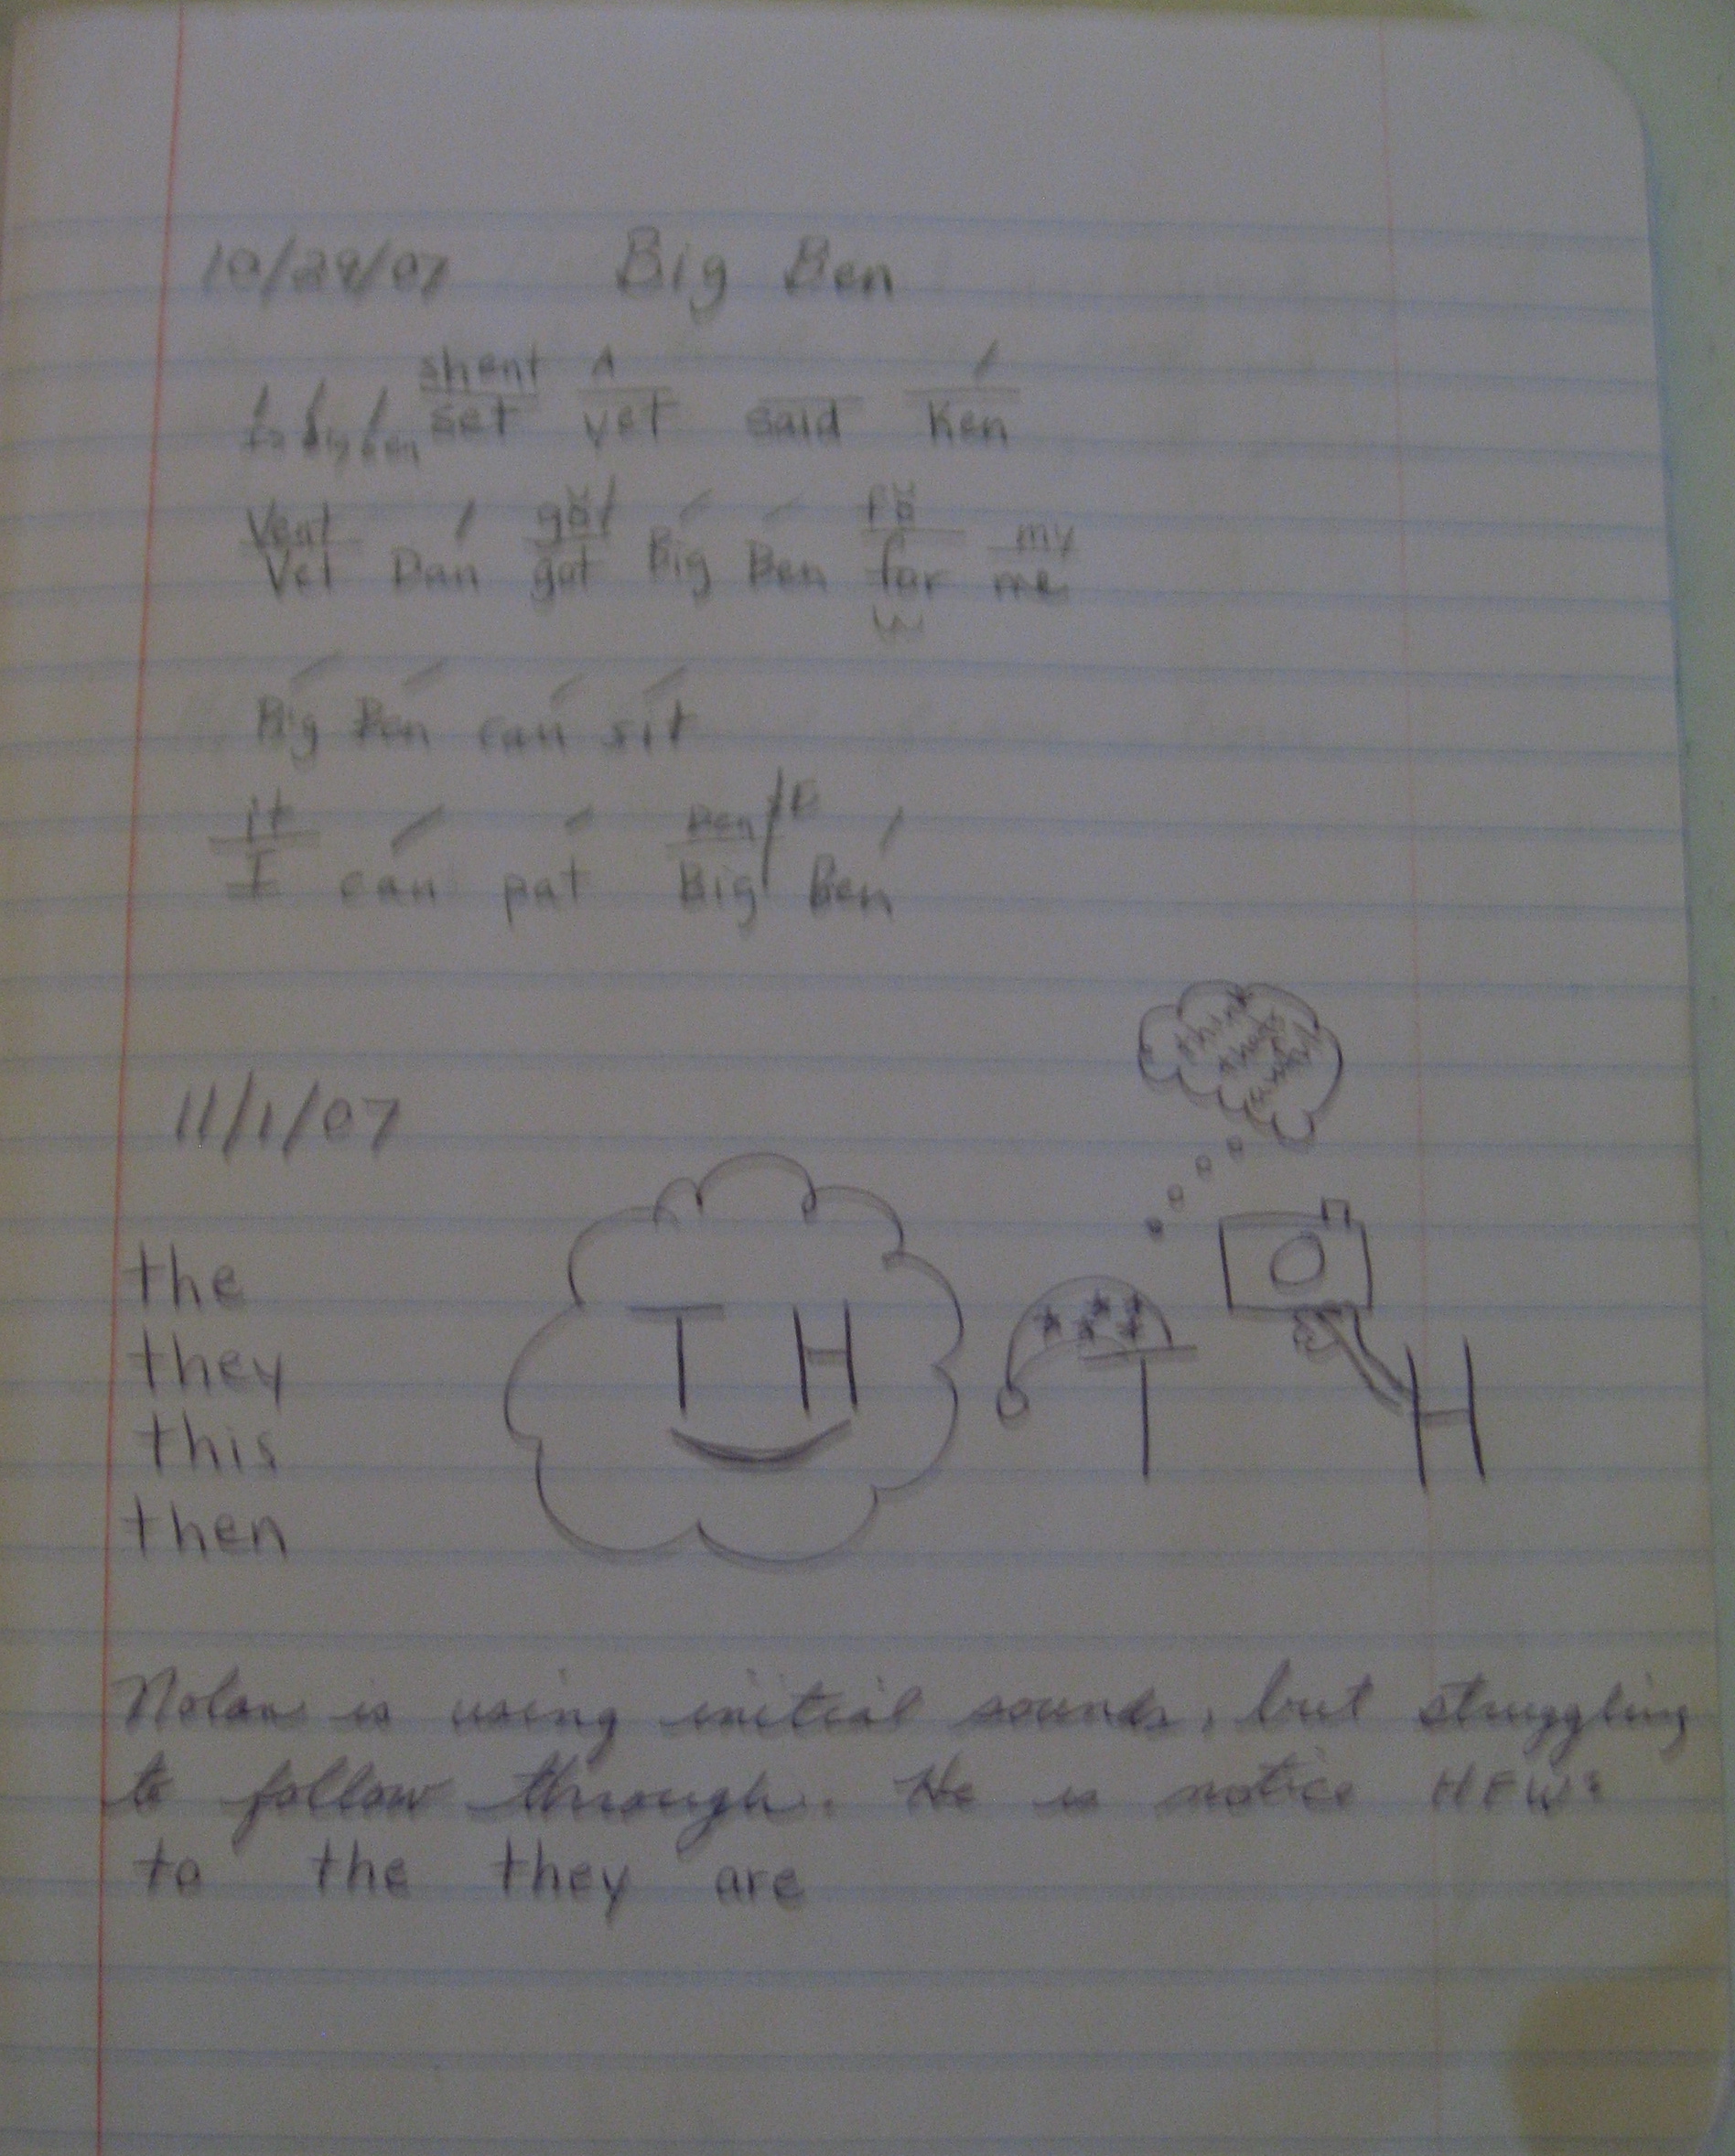 10/29/07 Big Ben
shent
Big Ben set yet said Ken
Vent gŏt my
Vet Dan got Big Ben for me
Big Ben can sit
it Ben
I can pat Big Ben
11/1/07
that's
away!
the
they
this
then
T H
T H
Nolan is using initial sounds, but struggling
to follow through. He is notice HFW:
to the they are